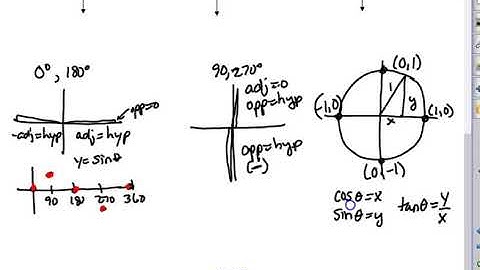 0°, 180°
opp=0
-adj=hyp adj=hyp
y=sinθ
90 180 270 360
90, 270°
adj=0
opp=hyp
opp=hyp
(-)
(0,1)
(-1,0)
1
y
x
(1,0)
(0,-1)
cosθ=x
sinθ=y
tanθ=y/x